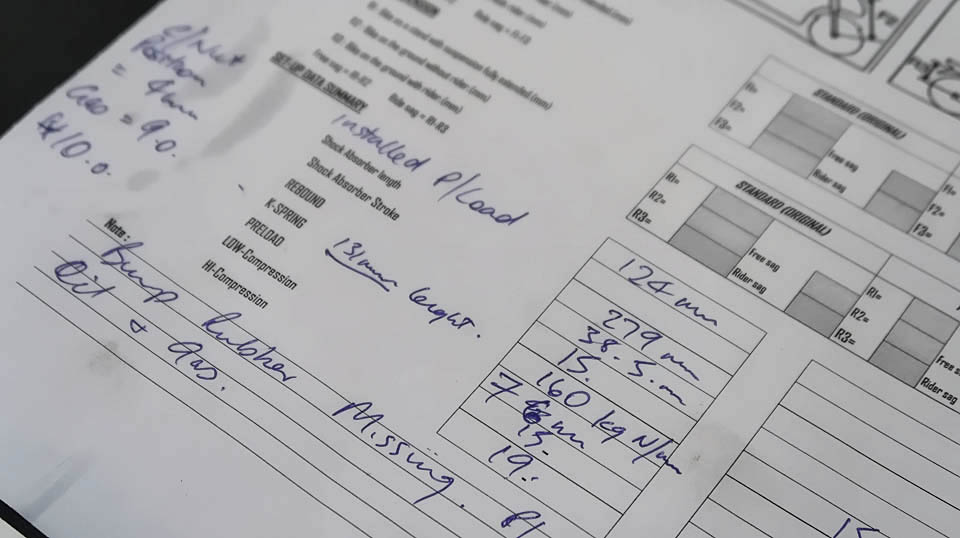 E/Nut
Position
= 4mm
Gas = 9.0.
10.0.
R1: Bike on a stand with suspension fully extended (mm)
R2: Bike on the ground without rider (mm)
R3: Bike on the ground with rider (mm)
Free sag = R1-R2 Ride sag = R1-R3
SET-UP DATA SUMMARY
Installed P/Load
Shock Absorber length
Shock Absorber Stroke
REBOUND
K-SPRING
PRELOAD
LOW-Compression
HI-Compression
131mm lenght.
124 mm
279 mm
38.5.m
15.
160 kg N/mm
7
13.
19.
Note:
Bump Rubber Missing.
Oil + Gas.
STANDARD (ORIGINAL)
F1=
F2=
F3=
Free sag
Rider sag
F1=
F2=
F3=
STANDARD (ORIGINAL)
R1=
R2=
R3=
Free sag
Rider sag
R1=
R2=
R3=
Free s
Rider sag